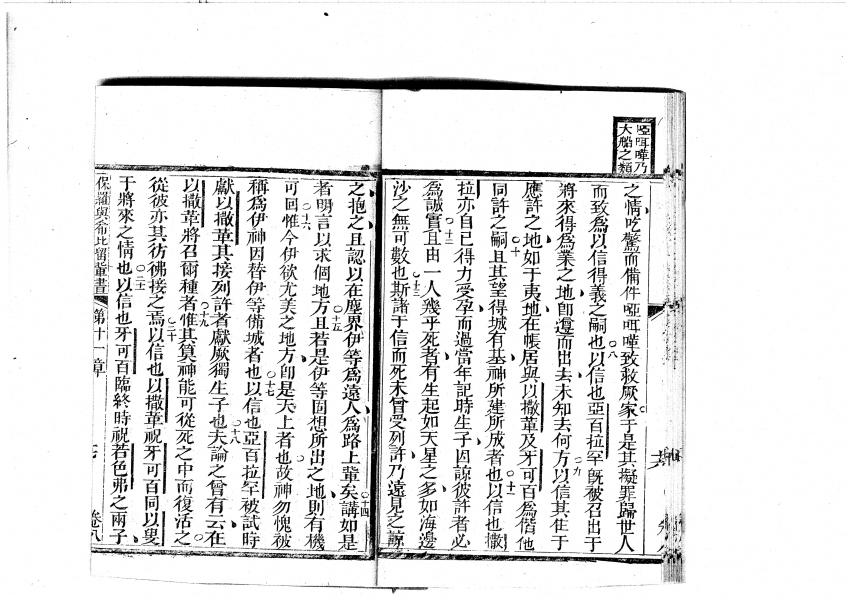 啞咡嘩乃
大船之類
之情吃驚而備件啞咡嘩致救厥家于是其擬罪歸世人
而致為以信得義之嗣也○八以信也亞百拉罕既被召出于
將來得為業之地卽遵而出去未知去何方○九以信其住于
應許之地如于夷地在帳居與以撒革及牙可百為偕他
同許之嗣○十且其望得城有基神所建所成者也○十一以信也撒
拉亦自己得力受孕而過當年記時生子因諒彼許者必
為誠實○十二且由一人幾乎死者有生起如天星之多如海邊
沙之無可數也○十三斯諸于信而死未曾受列許乃遠見之諒
之抱之且認以在塵界伊等為遠人為路上輩矣○十四講如是
者明言以求個地方○十五且若是伊等固想所出之地則有機
可回○十六惟今伊欲尤美之地方卽是天上者也故神勿愧被
稱為伊神因替伊等備城者也○十七以信也亞百拉罕被試時
獻以撒革其接列許者獻厥獨生子也○十八夫論之曾有云在
以撒革將召爾種者○十九惟其算神能可從死之中而復活之
從彼亦其彷彿接之焉○二十以信也以撒革祝牙可百同以叟
于將來之情也○二十一以信也牙可百臨終時祝若色弗之兩子
保羅與希比留輩書
第十一章
七
卷八